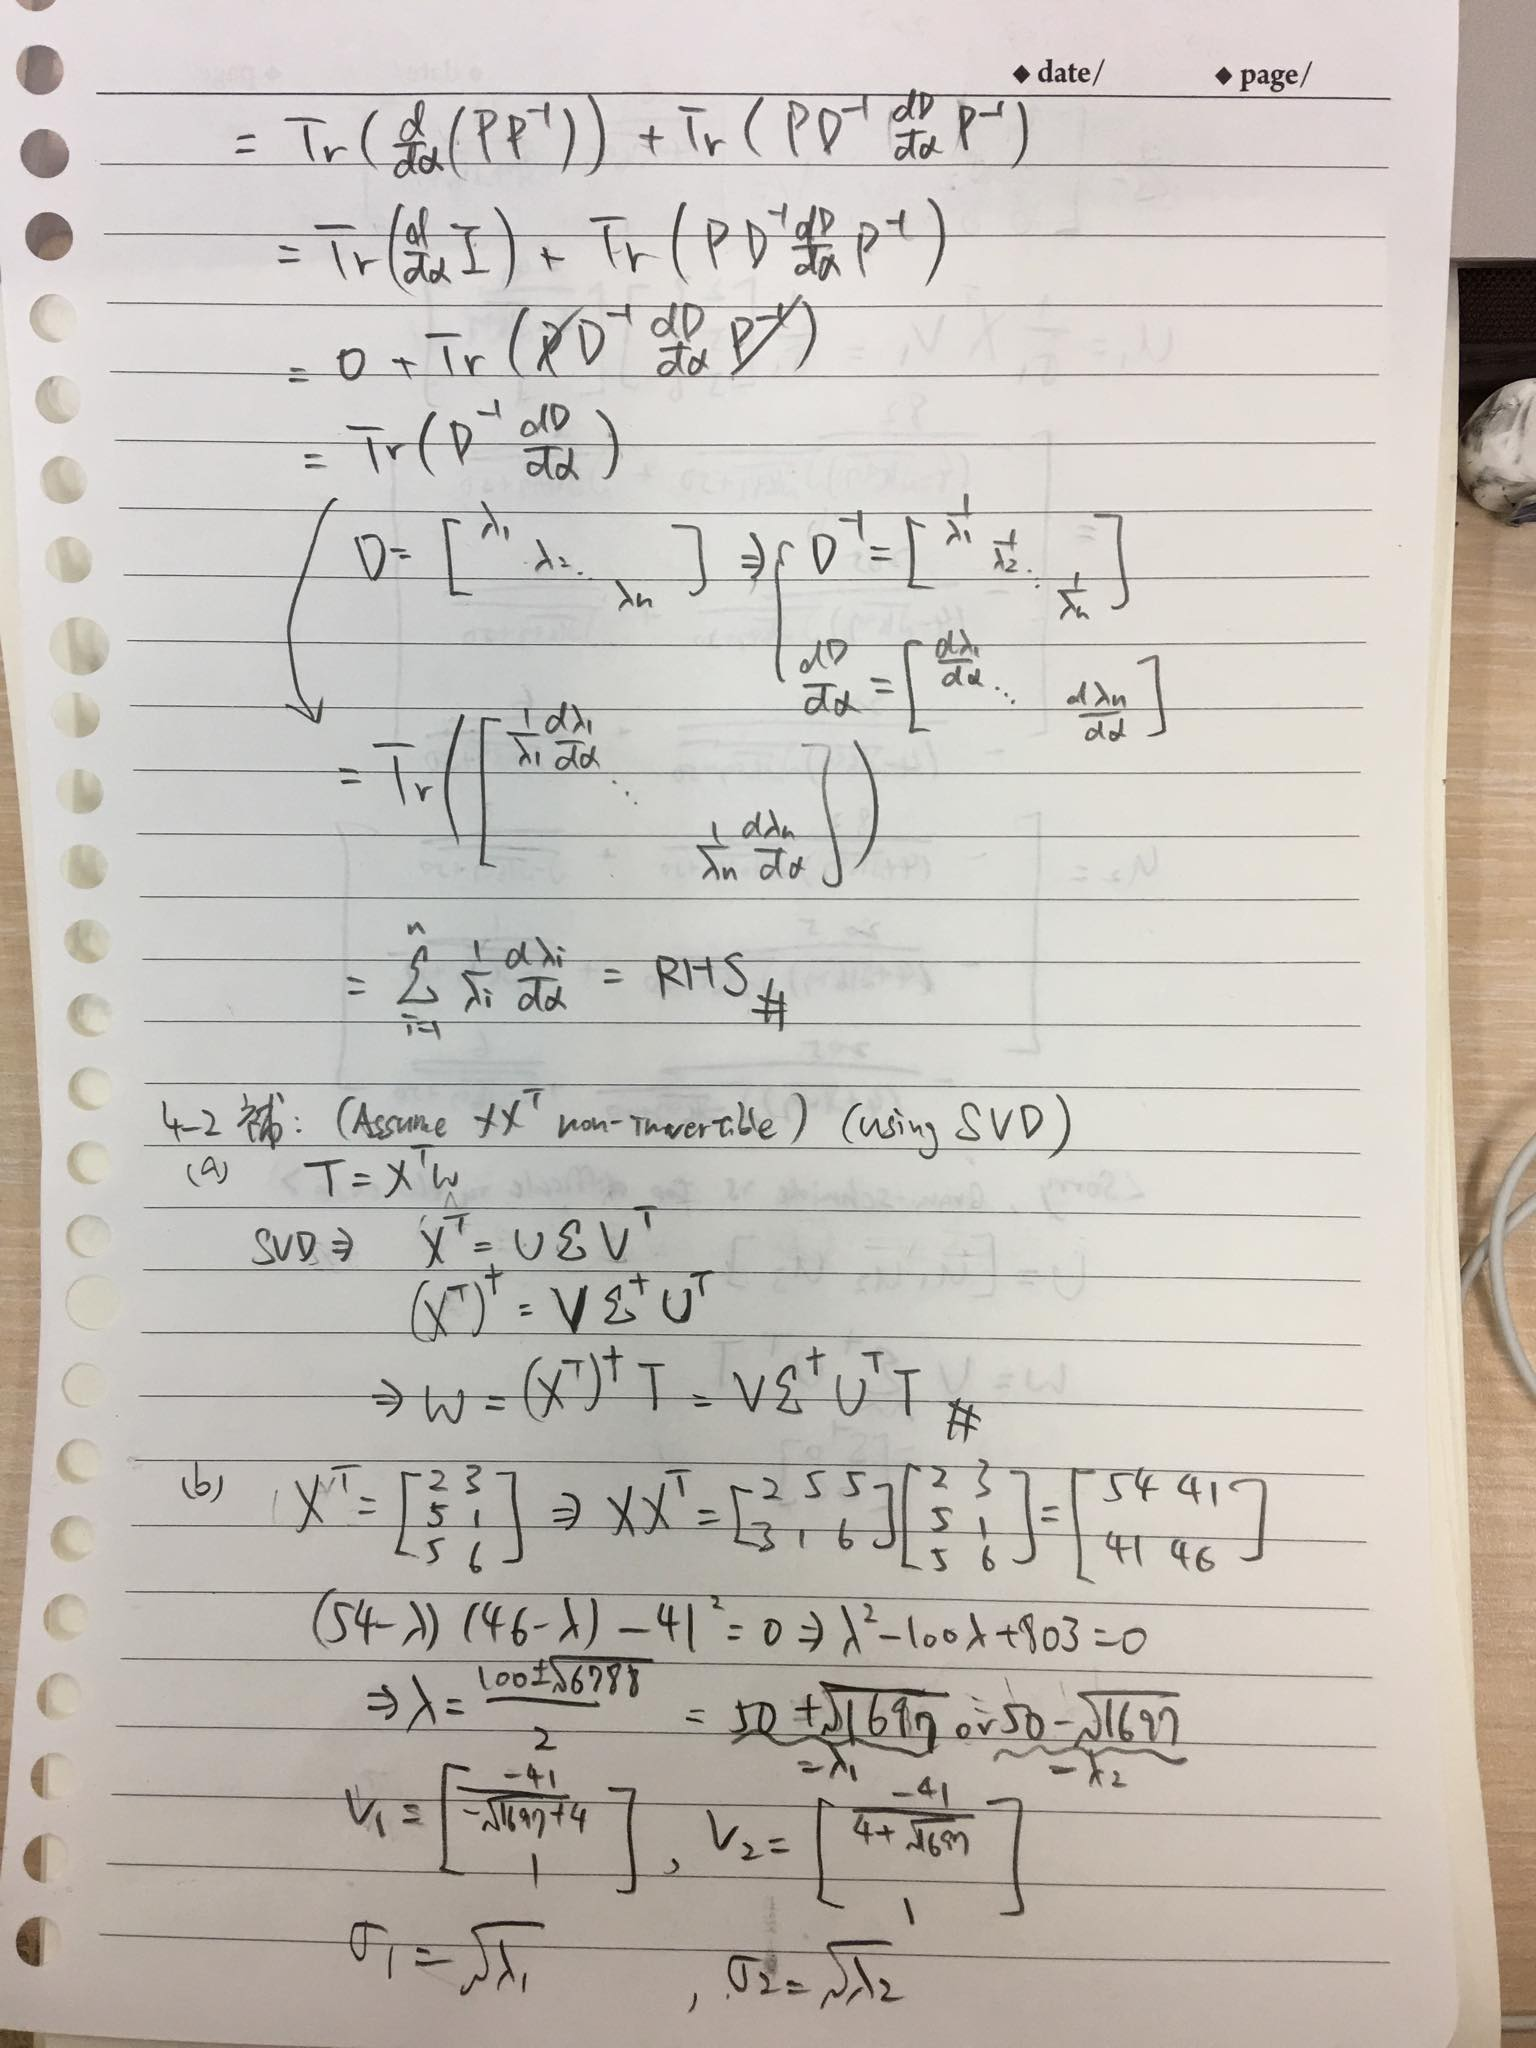 ◆ date/ ◆ page/
= Tr(d/dα(PP⁻¹)) + Tr(PD⁻¹ dD/dα P⁻¹)
= Tr(d/dα I) + Tr(PD⁻¹ dD/dα P⁻¹)
= 0 + Tr(PD⁻¹ dD/dα P⁻¹)
= Tr(D⁻¹ dD/dα)
D = [λ₁ λ₂ ⋱ λₙ] ⇒ { D⁻¹ = [1/λ₁ 1/λ₂ ⋱ 1/λₙ]
dD/dα = [dλ₁/dα ⋱ dλₙ/dα]
= Tr([1/λ₁ dλ₁/dα ⋱ 1/λₙ dλₙ/dα])
= Σᵢ₌₁ⁿ 1/λᵢ dλᵢ/dα = RHS #
4-2 補: (Assume XXᵀ non-invertible) (using SVD)
(a) T = Xᵀw
SVD ⇒ Xᵀ = UΣVᵀ
(Xᵀ)⁺ = VΣ⁺Uᵀ
⇒ w = (Xᵀ)⁺T = VΣ⁺UᵀT #
(b) Xᵀ = [2 3; 5 1; 5 6] ⇒ XXᵀ = [2 5 5; 3 1 6][2 3; 5 1; 5 6] = [54 41; 41 46]
(54-λ)(46-λ) - 41² = 0 ⇒ λ² - 100λ + 803 = 0
⇒ λ = (100±√6788)/2 = 50+√1697 or 50-√1697
=λ₁ =λ₂
V₁ = [-41/(-√1697+4); 1], V₂ = [-41/(4+√1697); 1]
σ₁ = √λ₁, σ₂ = √λ₂